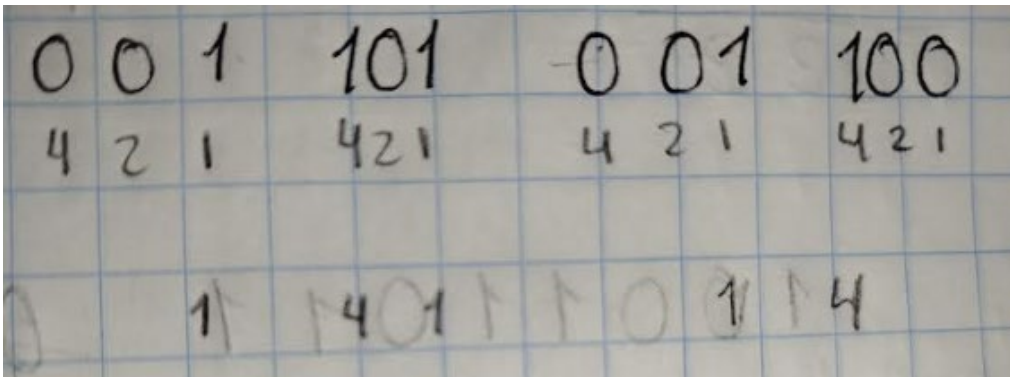 0 0 1 101 0 01 100
4 2 1 421 4 2 1 4 2 1
1 4 1 1 4